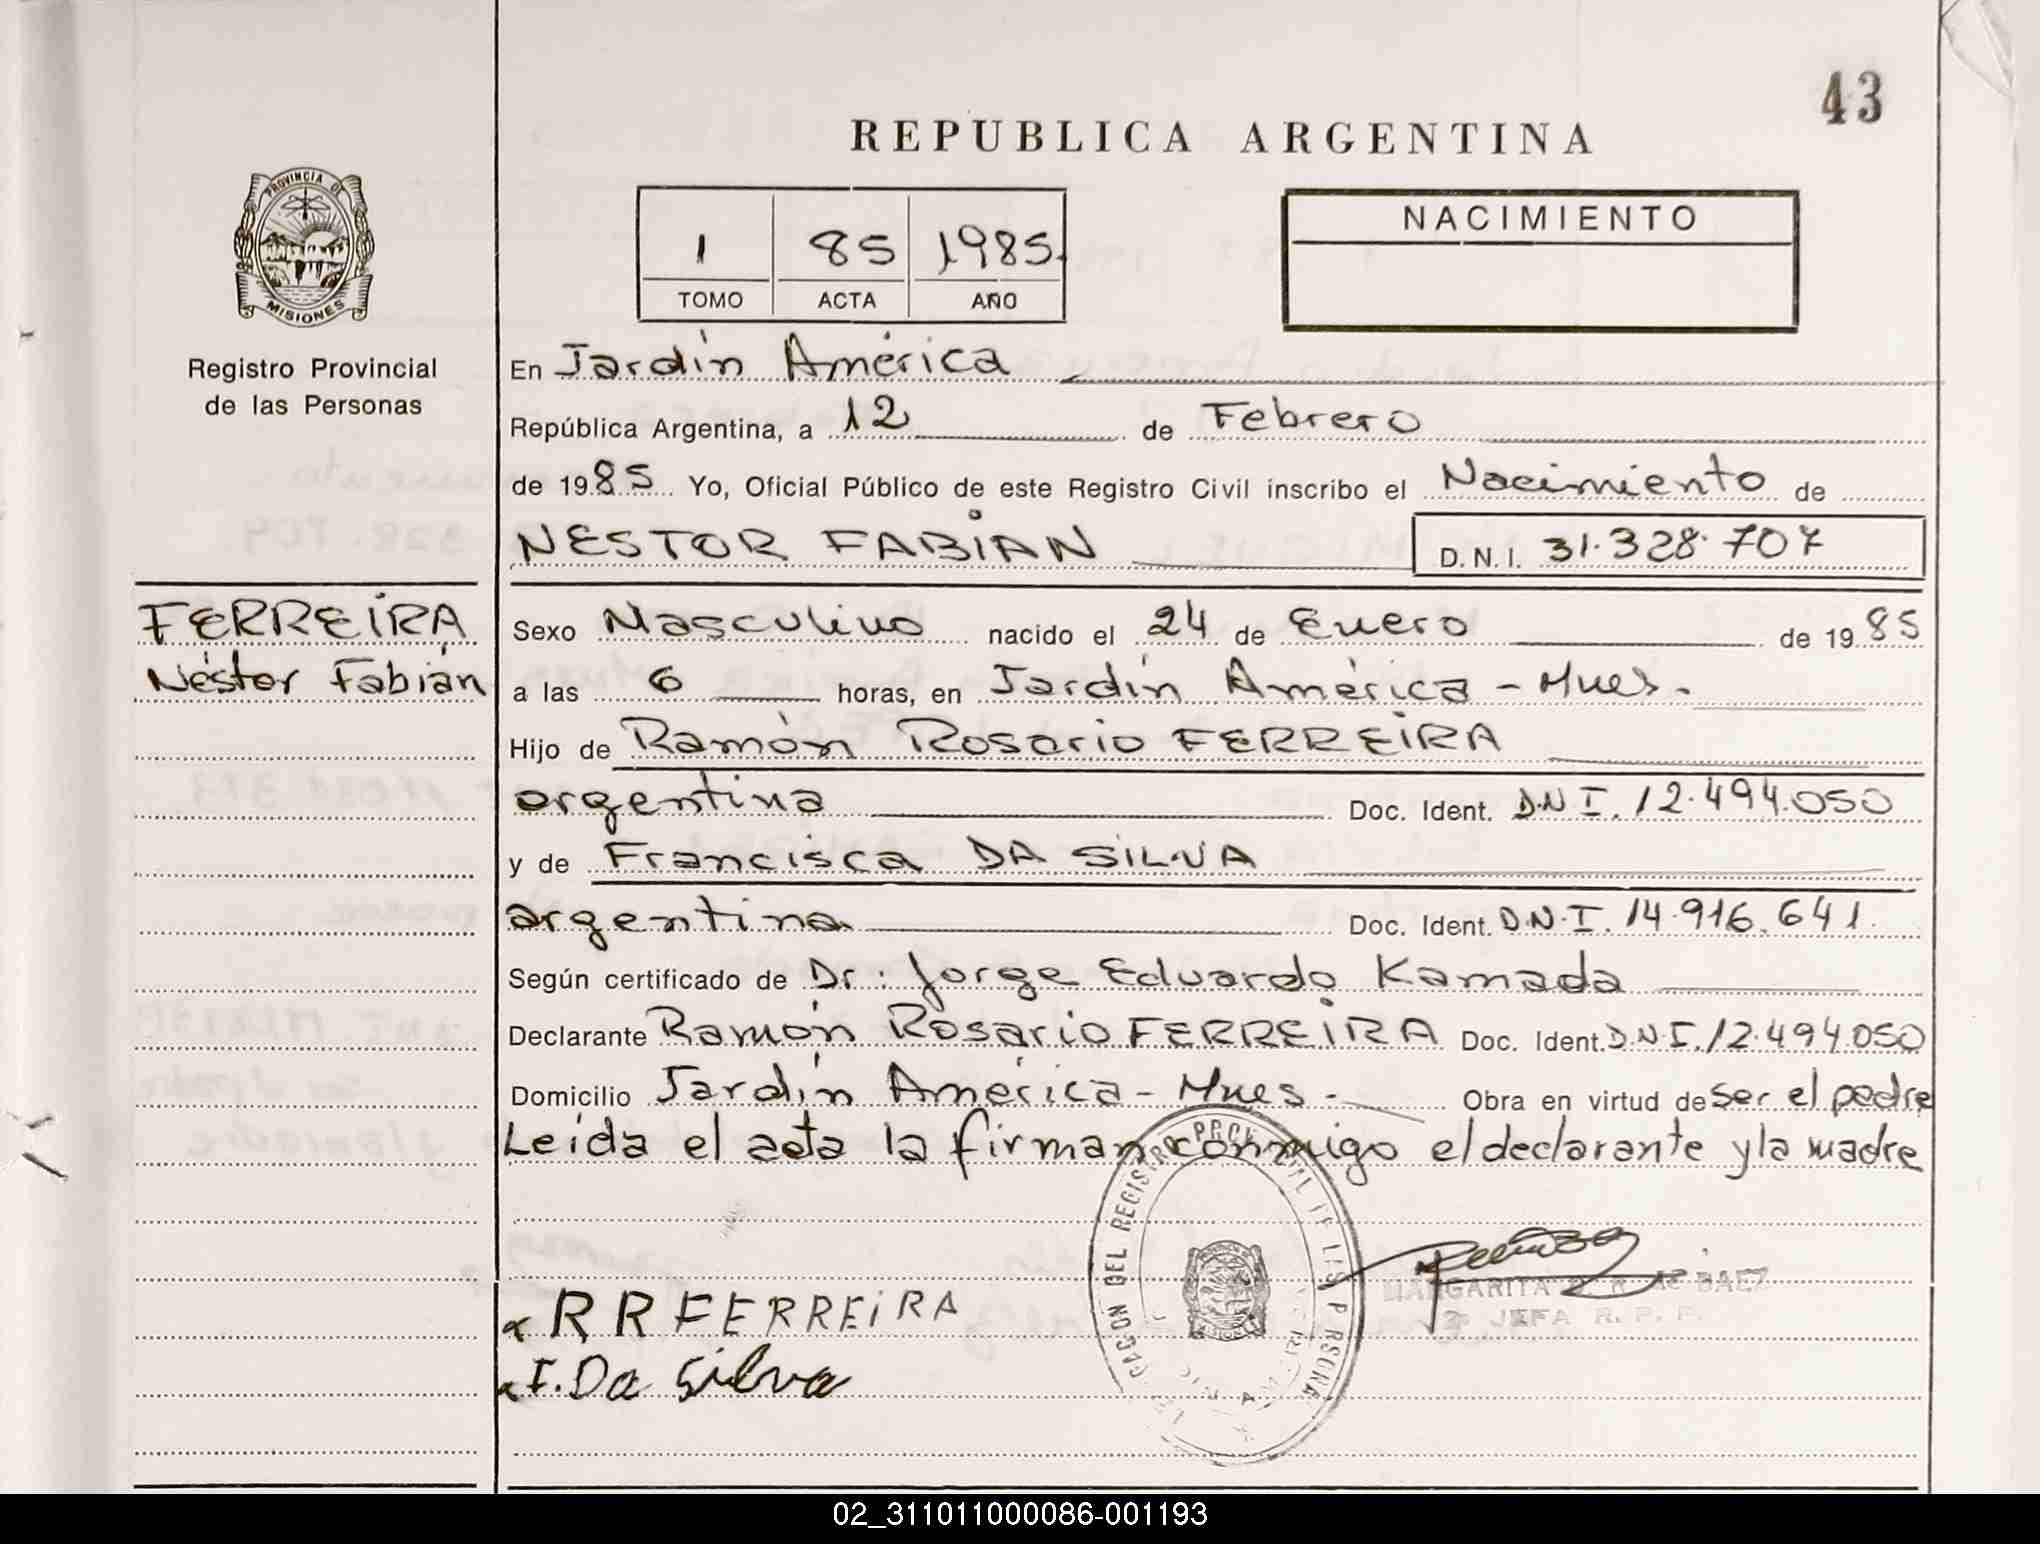 43
REPUBLICA ARGENTINA
PROVINCIA DE
MISIONES
1 85 1985
TOMO ACTA AÑO
NACIMIENTO
Registro Provincial
de las Personas
En Jardín América
República Argentina, a 12 de Febrero
de 1985 Yo, Oficial Público de este Registro Civil inscribo el Nacimiento de
NESTOR FABIAN D.N.I. 31.328.707
FERREIRA
Néstor Fabián
Sexo Masculino nacido el 24 de Enero de 1985
a las 6 horas, en Jardín América - Mnes.
Hijo de Ramón Rosario FERREIRA
argentina Doc. Ident. D.N.I. 12.494.050
y de Francisca DA SILVA
argentina Doc. Ident. D.N.I. 14.916.641.
Según certificado de Dr: Jorge Eduardo Kamada
Declarante Ramón Rosario FERREIRA Doc. Ident. D.N.I. 12.494.050
Domicilio Jardín América - Mnes - Obra en virtud de ser el padre
Leída el acta la firman conmigo el declarante y la madre
DEL REGISTRO
MARGARITA R. de BAEZ
JEFA R. P. P.
R R FERREIRA
F. Da Silva
02_311011000086-001193